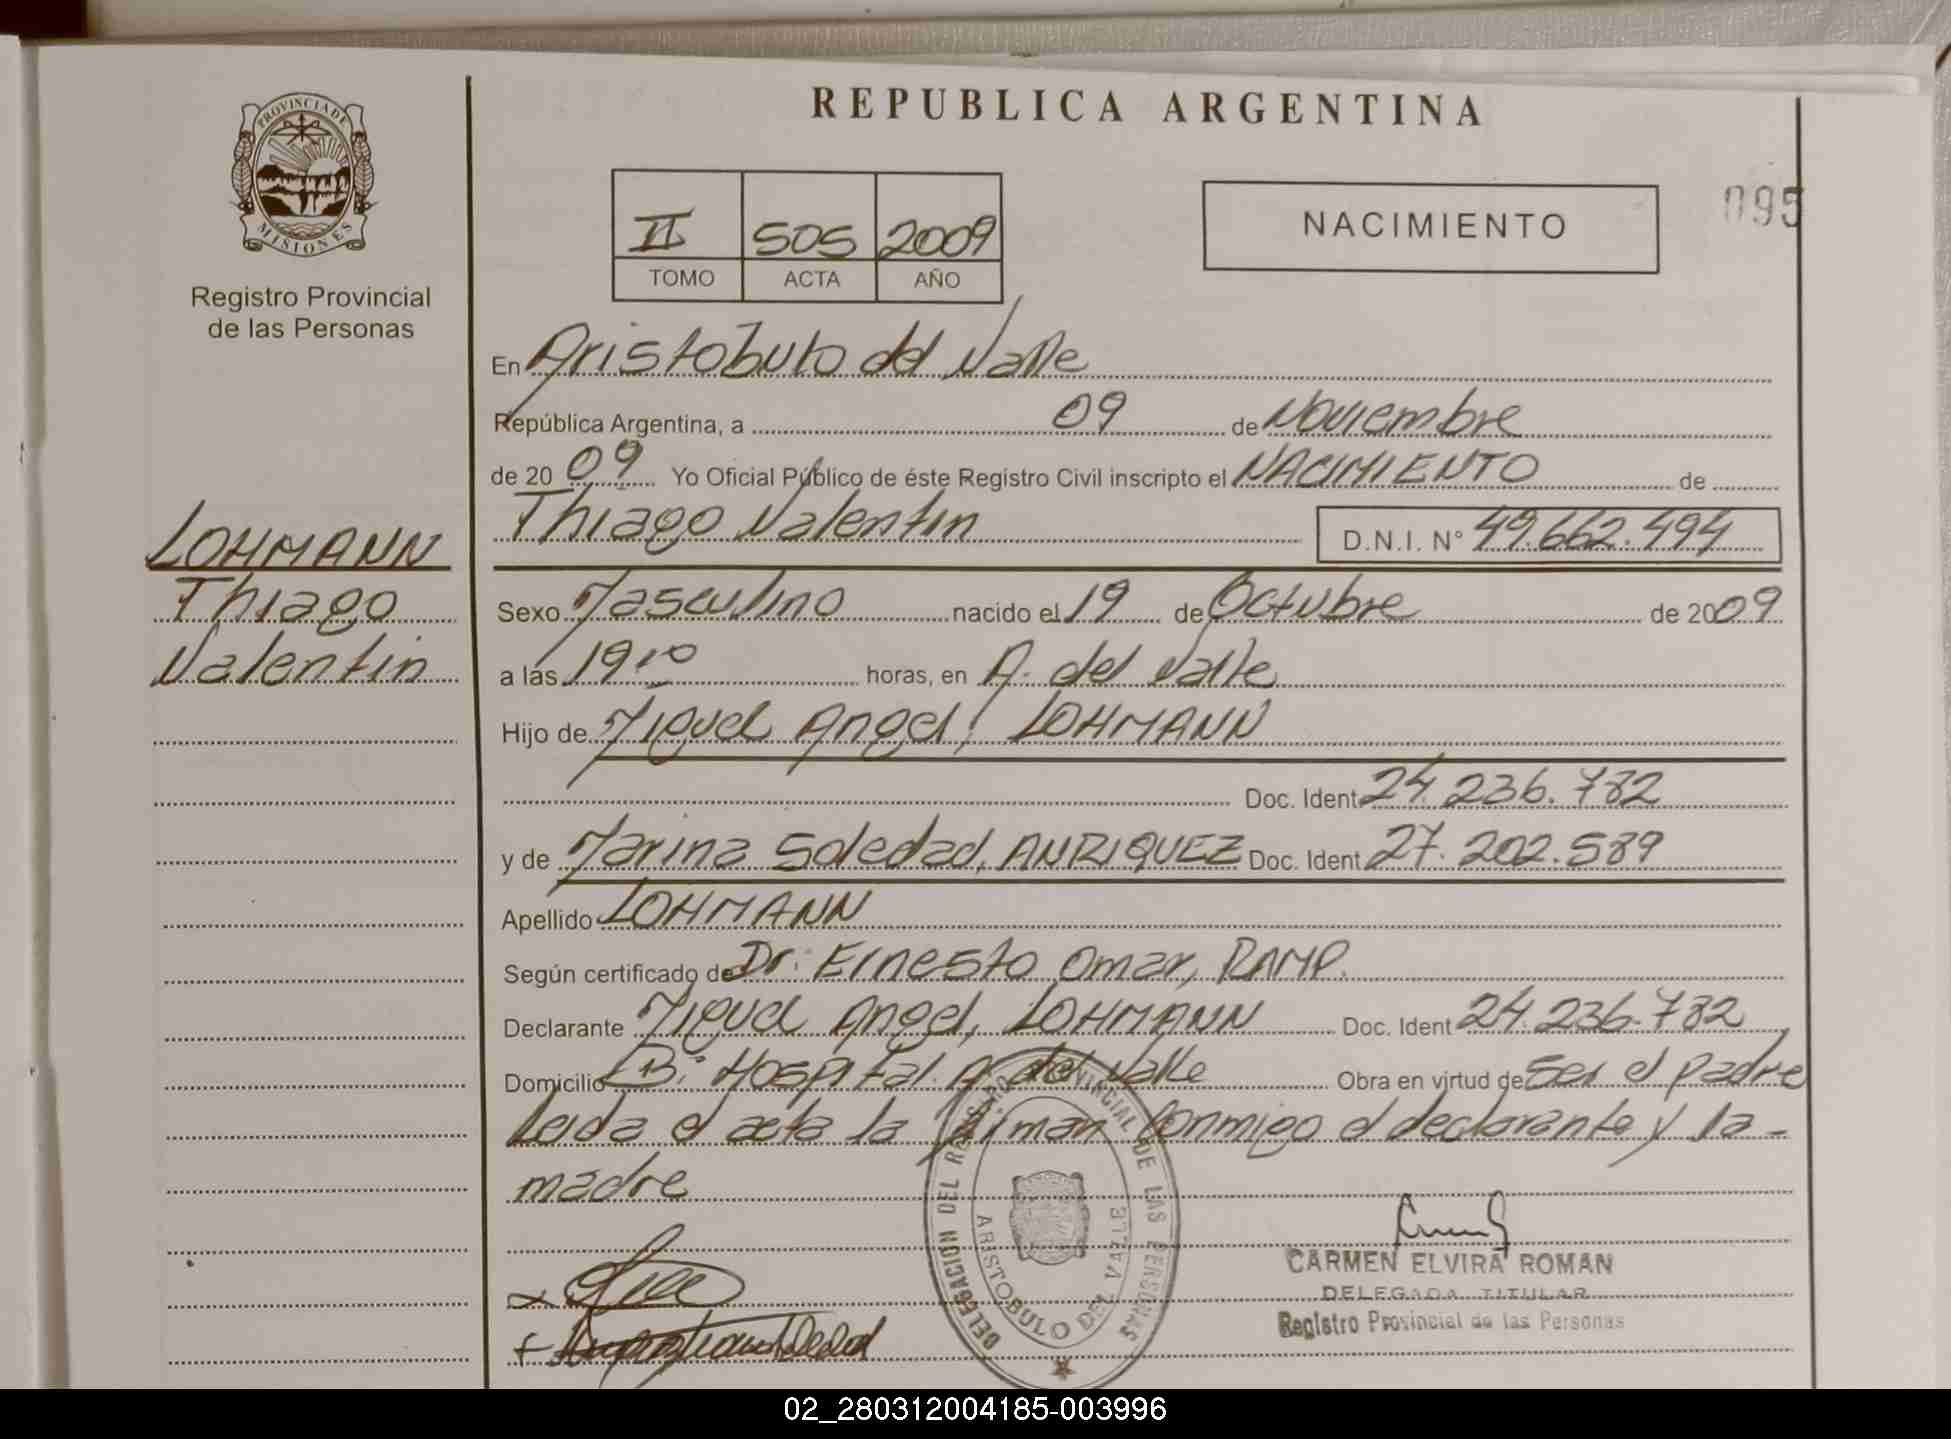 PROVINCIA DE
MISIONES
Registro Provincial
de las Personas
REPUBLICA ARGENTINA
II 505 2009
TOMO ACTA AÑO
NACIMIENTO
095
En Aristobulo del Valle
República Argentina, a 09 de Noviembre
de 20 09 Yo Oficial Público de éste Registro Civil inscripto el NACIMIENTO de
Thiago Valentin D.N.I. N° 49.662.494
LOHMANN
Thiago
Valentin
Sexo Masculino nacido el 19 de Octubre de 2009
a las 19 10 horas, en A. del Valle
Hijo de Miguel Angel, LOHMANN
Doc. Ident 24.236.782
y de Marina Soledad, ANRIQUEZ Doc. Ident 27.202.589
Apellido LOHMANN
Según certificado de Dr. Ernesto Omar, RAMP.
Declarante Miguel Angel, LOHMANN Doc. Ident 24.236.782
Domicilio B: Hospital A. del Valle Obra en virtud de Ser el padre
Leida el acta la firman conmigo el declarante y la-
madre
DELEGACION DEL REGISTRO PROVINCIAL DE LAS PERSONAS
ARISTOBULO DEL VALLE
CARMEN ELVIRA ROMAN
DELEGADA TITULAR
Registro Provincial de las Personas
02_280312004185-003996